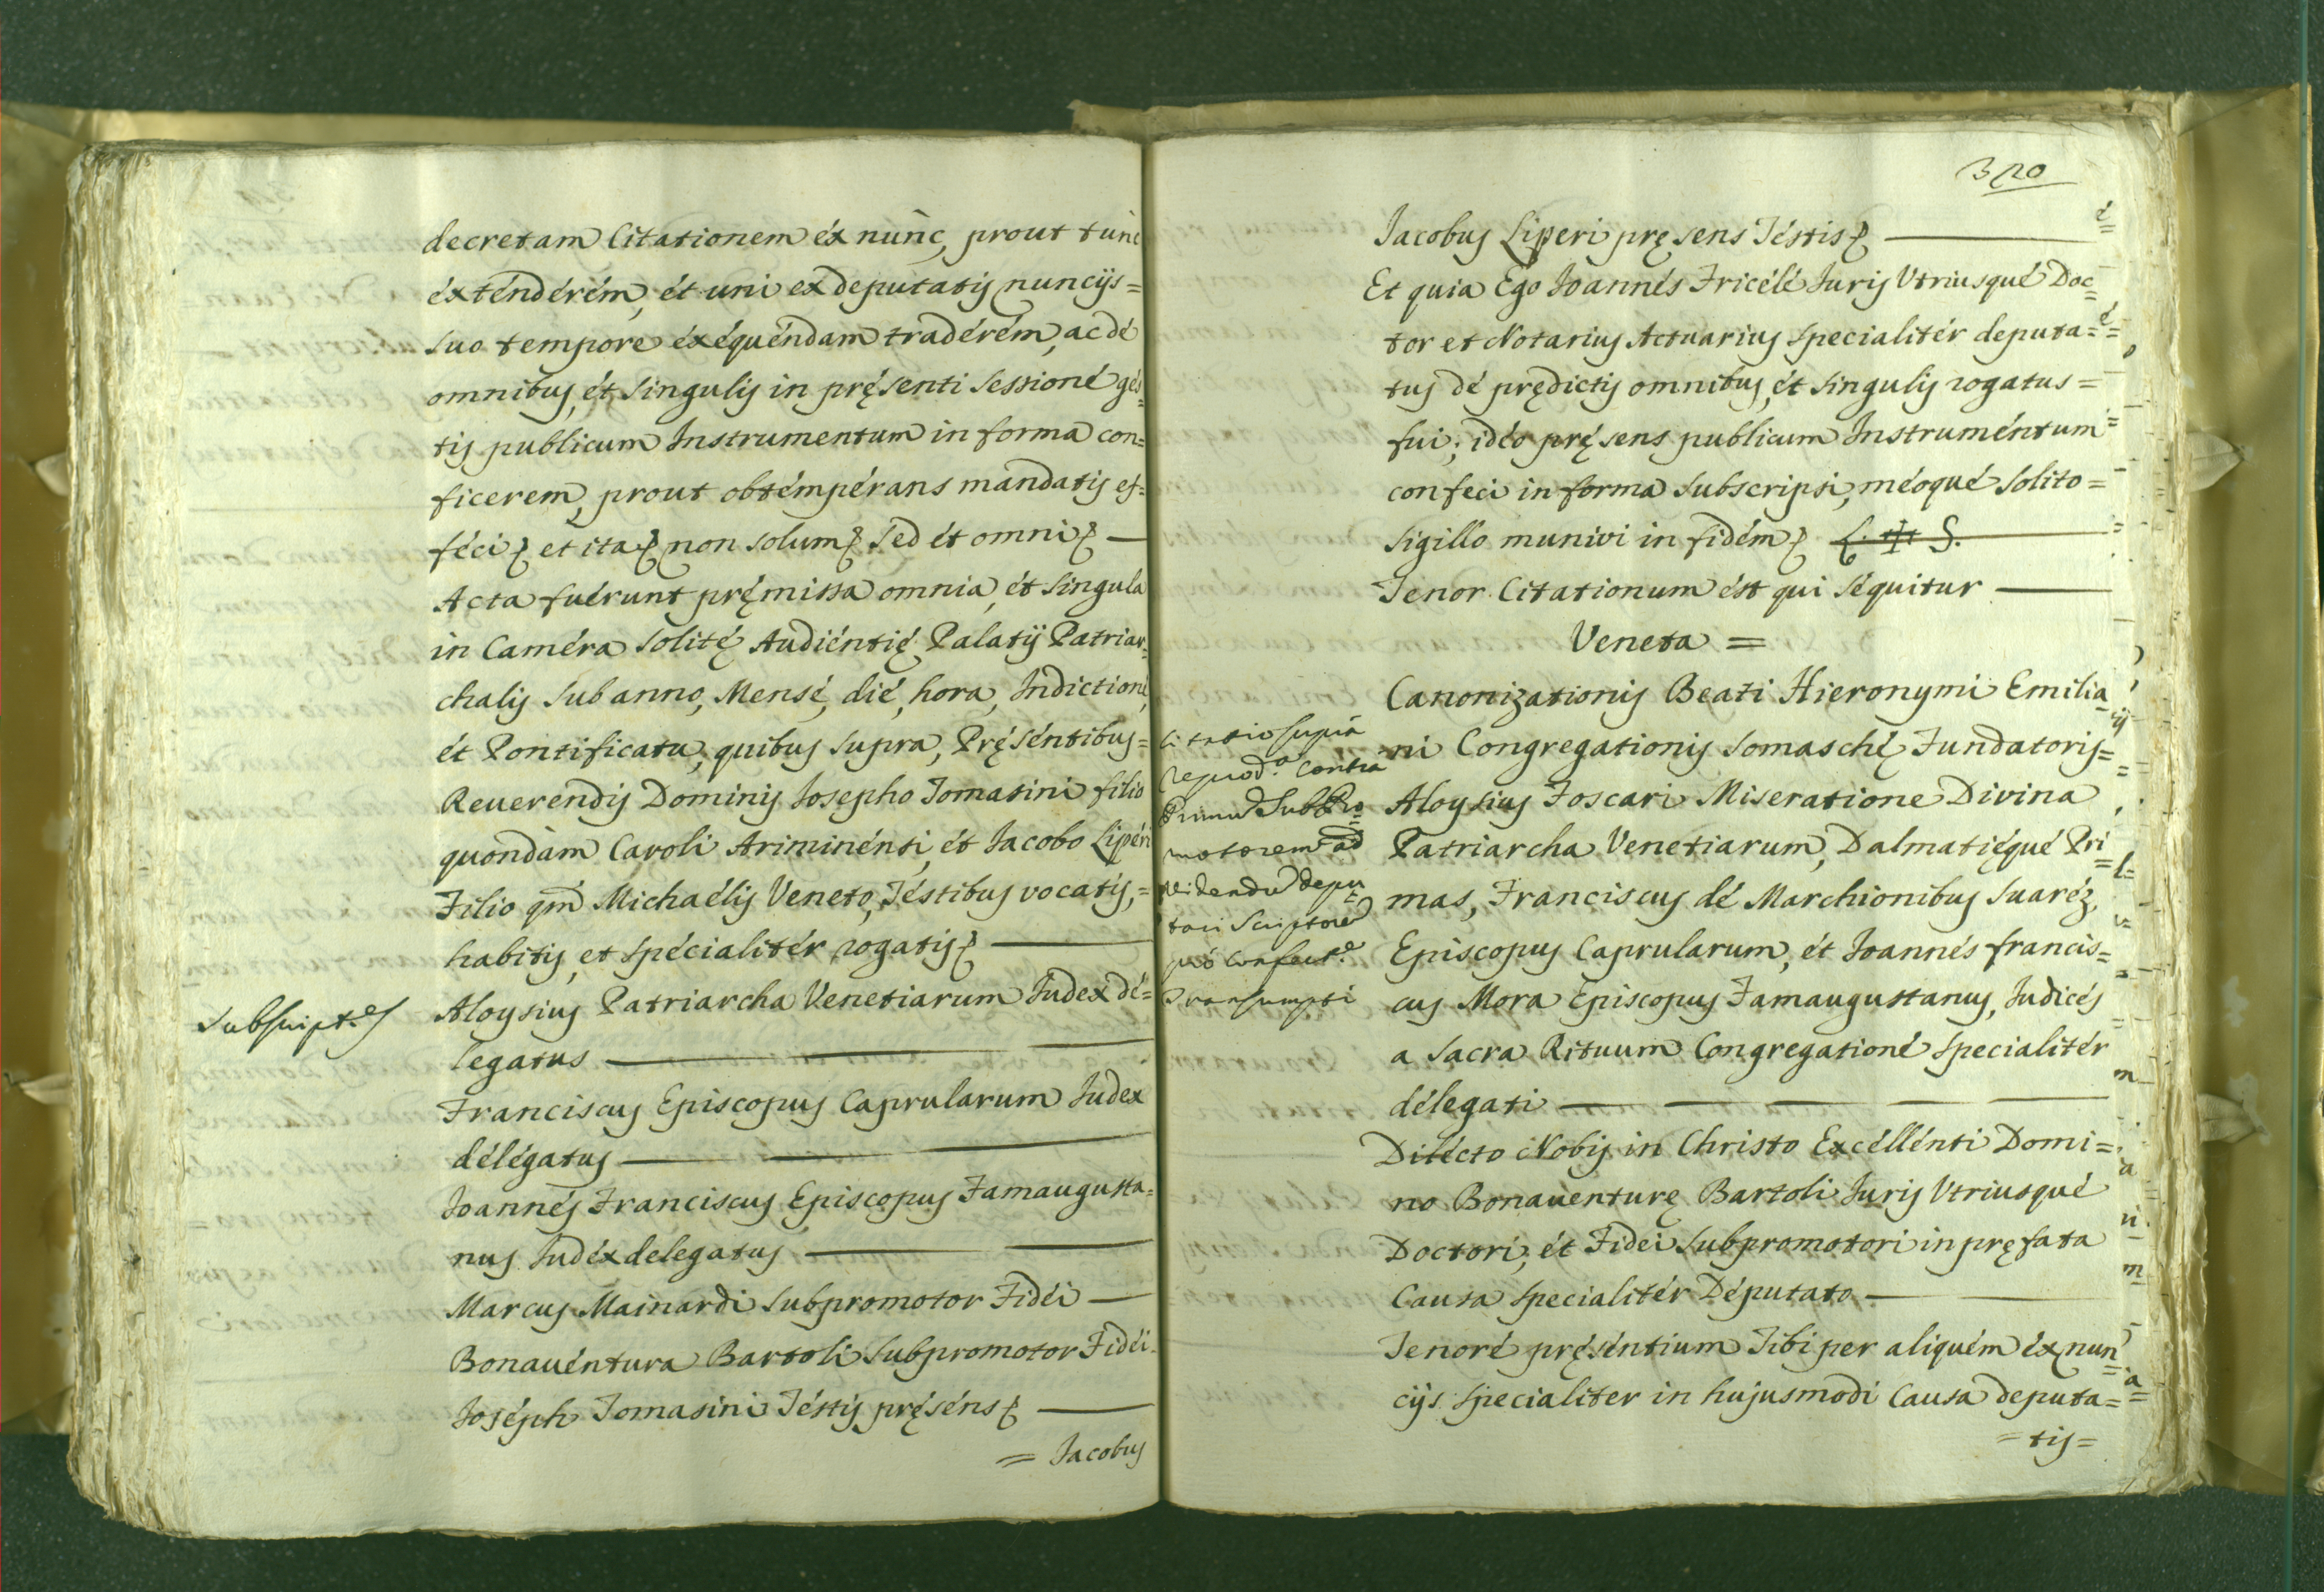 decretam Citationem éx nunc, prout tunc
éxténdérém, ét uni ex deputatis nuncijs=
suo tempore éxéquéndam tradérém, ac dé
omnibus, ét singulis in pręsenti sessioné gés=
tis publicum Instrumentum in forma con=
ficerem, prout obtémpérans mandatis ef=
féci et ita non solum sed ét omni —
Acta fuérunt pręmissa omnia, ét singula
in Caméra solitę Audiéntię Palatij Patriar=
chalis sub anno, Mensé, dié, hora, Indictioné,
ét Pontificatu, quibus supra, Pręséntibus=
Reuerendis Dominis Iosepho Tomasini filio
quondàm Caroli Ariminénsi, ét Iacobo Lipéri
Filio qm̃ Michaélis Veneto, Téstibus vocatis,=
habitis, et spécialitér rogatis —
Subscript.es
Aloysius Patriarcha Venetiarum Iudex dé=
legatus —
Franciscus Episcopus Caprularum Iudex
délégatus —
Ioannés Franciscus Episcopus Famaugusta=
nus Iudéx delegatus —
Marcus Mainardi Subpromotor Fidéi —
Bonauéntura Bartoli Subpromotor Fidéi.
Ioséph Tomasini Téstis pręséns —
= Iacobus
320
Iacobus Liperi pręsens Téstis —
Et quia Ego Ioannés Fricélé Iuris Vtriusqué Doc=
tor et Notarius Actuarius specialitér deputa=
tus dé prędictis omnibus, ét singulis rogatus=
fui; idéo pręsens publicum Instruméntum
confeci in forma subscripsi, méoqué solito=
sigillo munivi in fidém L. ✠ S.
Tenor Citationum ést qui séquitur —
Veneta =
Canonizationis Beati Hieronymi Emilia=
ni Congregationis Somaschę Fundatoris=
Citatio supra
reprod.a contra
Primũ SubPro=
motorem ad
videndũ depu=
tari Scriptorẽ
pró confect.e
Transumpti
Aloysius Foscari Miseratione Divina
Patriarcha Venetiarum, Dalmatiéqué Pri=
mas, Franciscus dé Marchionibus Suaréz,
Episcopus Caprularum, ét Ioannés francis=
cus Mora Episcopus Famaugustanus, Iudicés
a Sacra Rituum Congregationé specialitér
délegati —
Dilécto Nobis in Christo Excéllénti Domi=
no Bonauenturę Bartoli Iuris Vtriusqué
Doctori, ét Fidei Subpromotori in pręfata
Causa specialitér Députato —
Tenoré pręséntium Tibi per aliquém éx nun=
cijs specialiter in hujusmodi Causa deputa=
=tis=